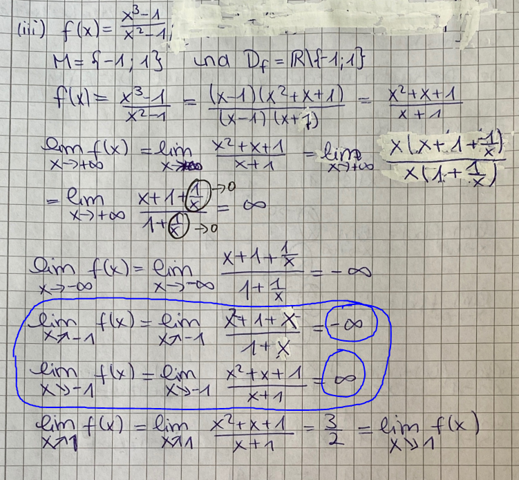 (iii) f(x) = \frac{x^3-1}{x^2-1};
M = {-1; 1} und D_f = ℝ\{-1; 1}
f(x) = \frac{x^3-1}{x^2-1} = \frac{(x-1)(x^2+x+1)}{(x-1)(x+1)} = \frac{x^2+x+1}{x+1}
\lim_{x→+∞} f(x) = \lim_{x→+∞} \frac{x^2+x+1}{x+1} = \lim_{x→+∞} \frac{x(x+1+\frac{1}{x})}{x(1+\frac{1}{x})}
= \lim_{x→+∞} \frac{x+1+\frac{1}{x} →0}{1+\frac{1}{x} →0} = ∞
\lim_{x→-∞} f(x) = \lim_{x→-∞} \frac{x+1+\frac{1}{x}}{1+\frac{1}{x}} = -∞
\lim_{x↗-1} f(x) = \lim_{x↗-1} \frac{x^2+1+x}{1+x} = -∞
\lim_{x↘-1} f(x) = \lim_{x↘-1} \frac{x^2+x+1}{x+1} = ∞
\lim_{x↗1} f(x) = \lim_{x↗1} \frac{x^2+x+1}{x+1} = \frac{3}{2} = \lim_{x↘1} f(x)